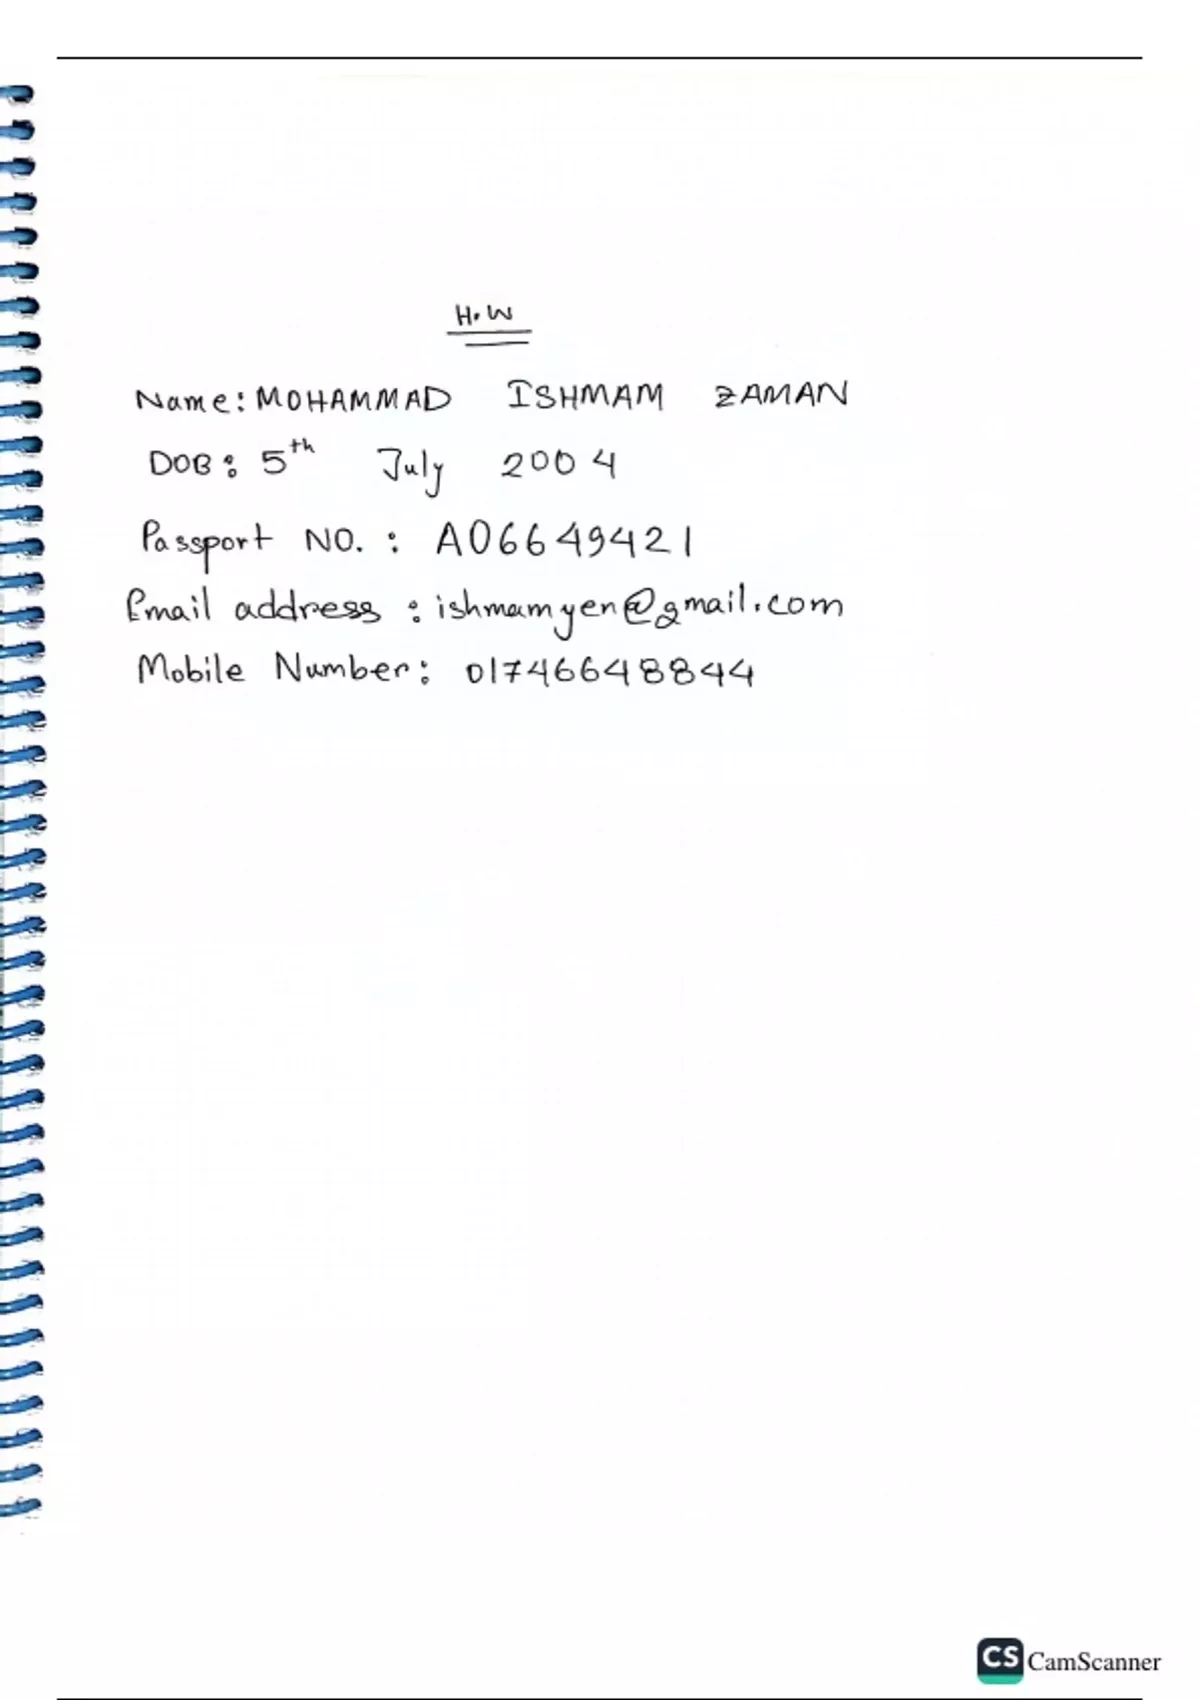 H.W
Name: MOHAMMAD ISHMAM ZAMAN
DOB: 5th July 2004
Passport NO. : A06649421
Email address : ishmamyen@gmail.com
Mobile Number: 01746648844
CS CamScanner